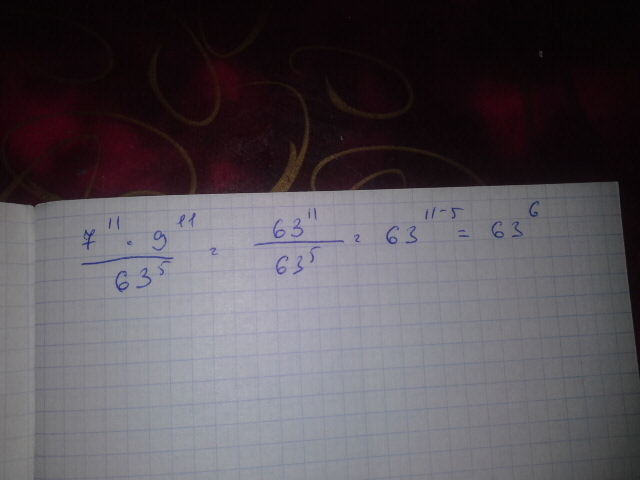 7¹¹ · 9¹¹ / 63⁵ = 63¹¹ / 63⁵ = 63¹¹⁻⁵ = 63⁶